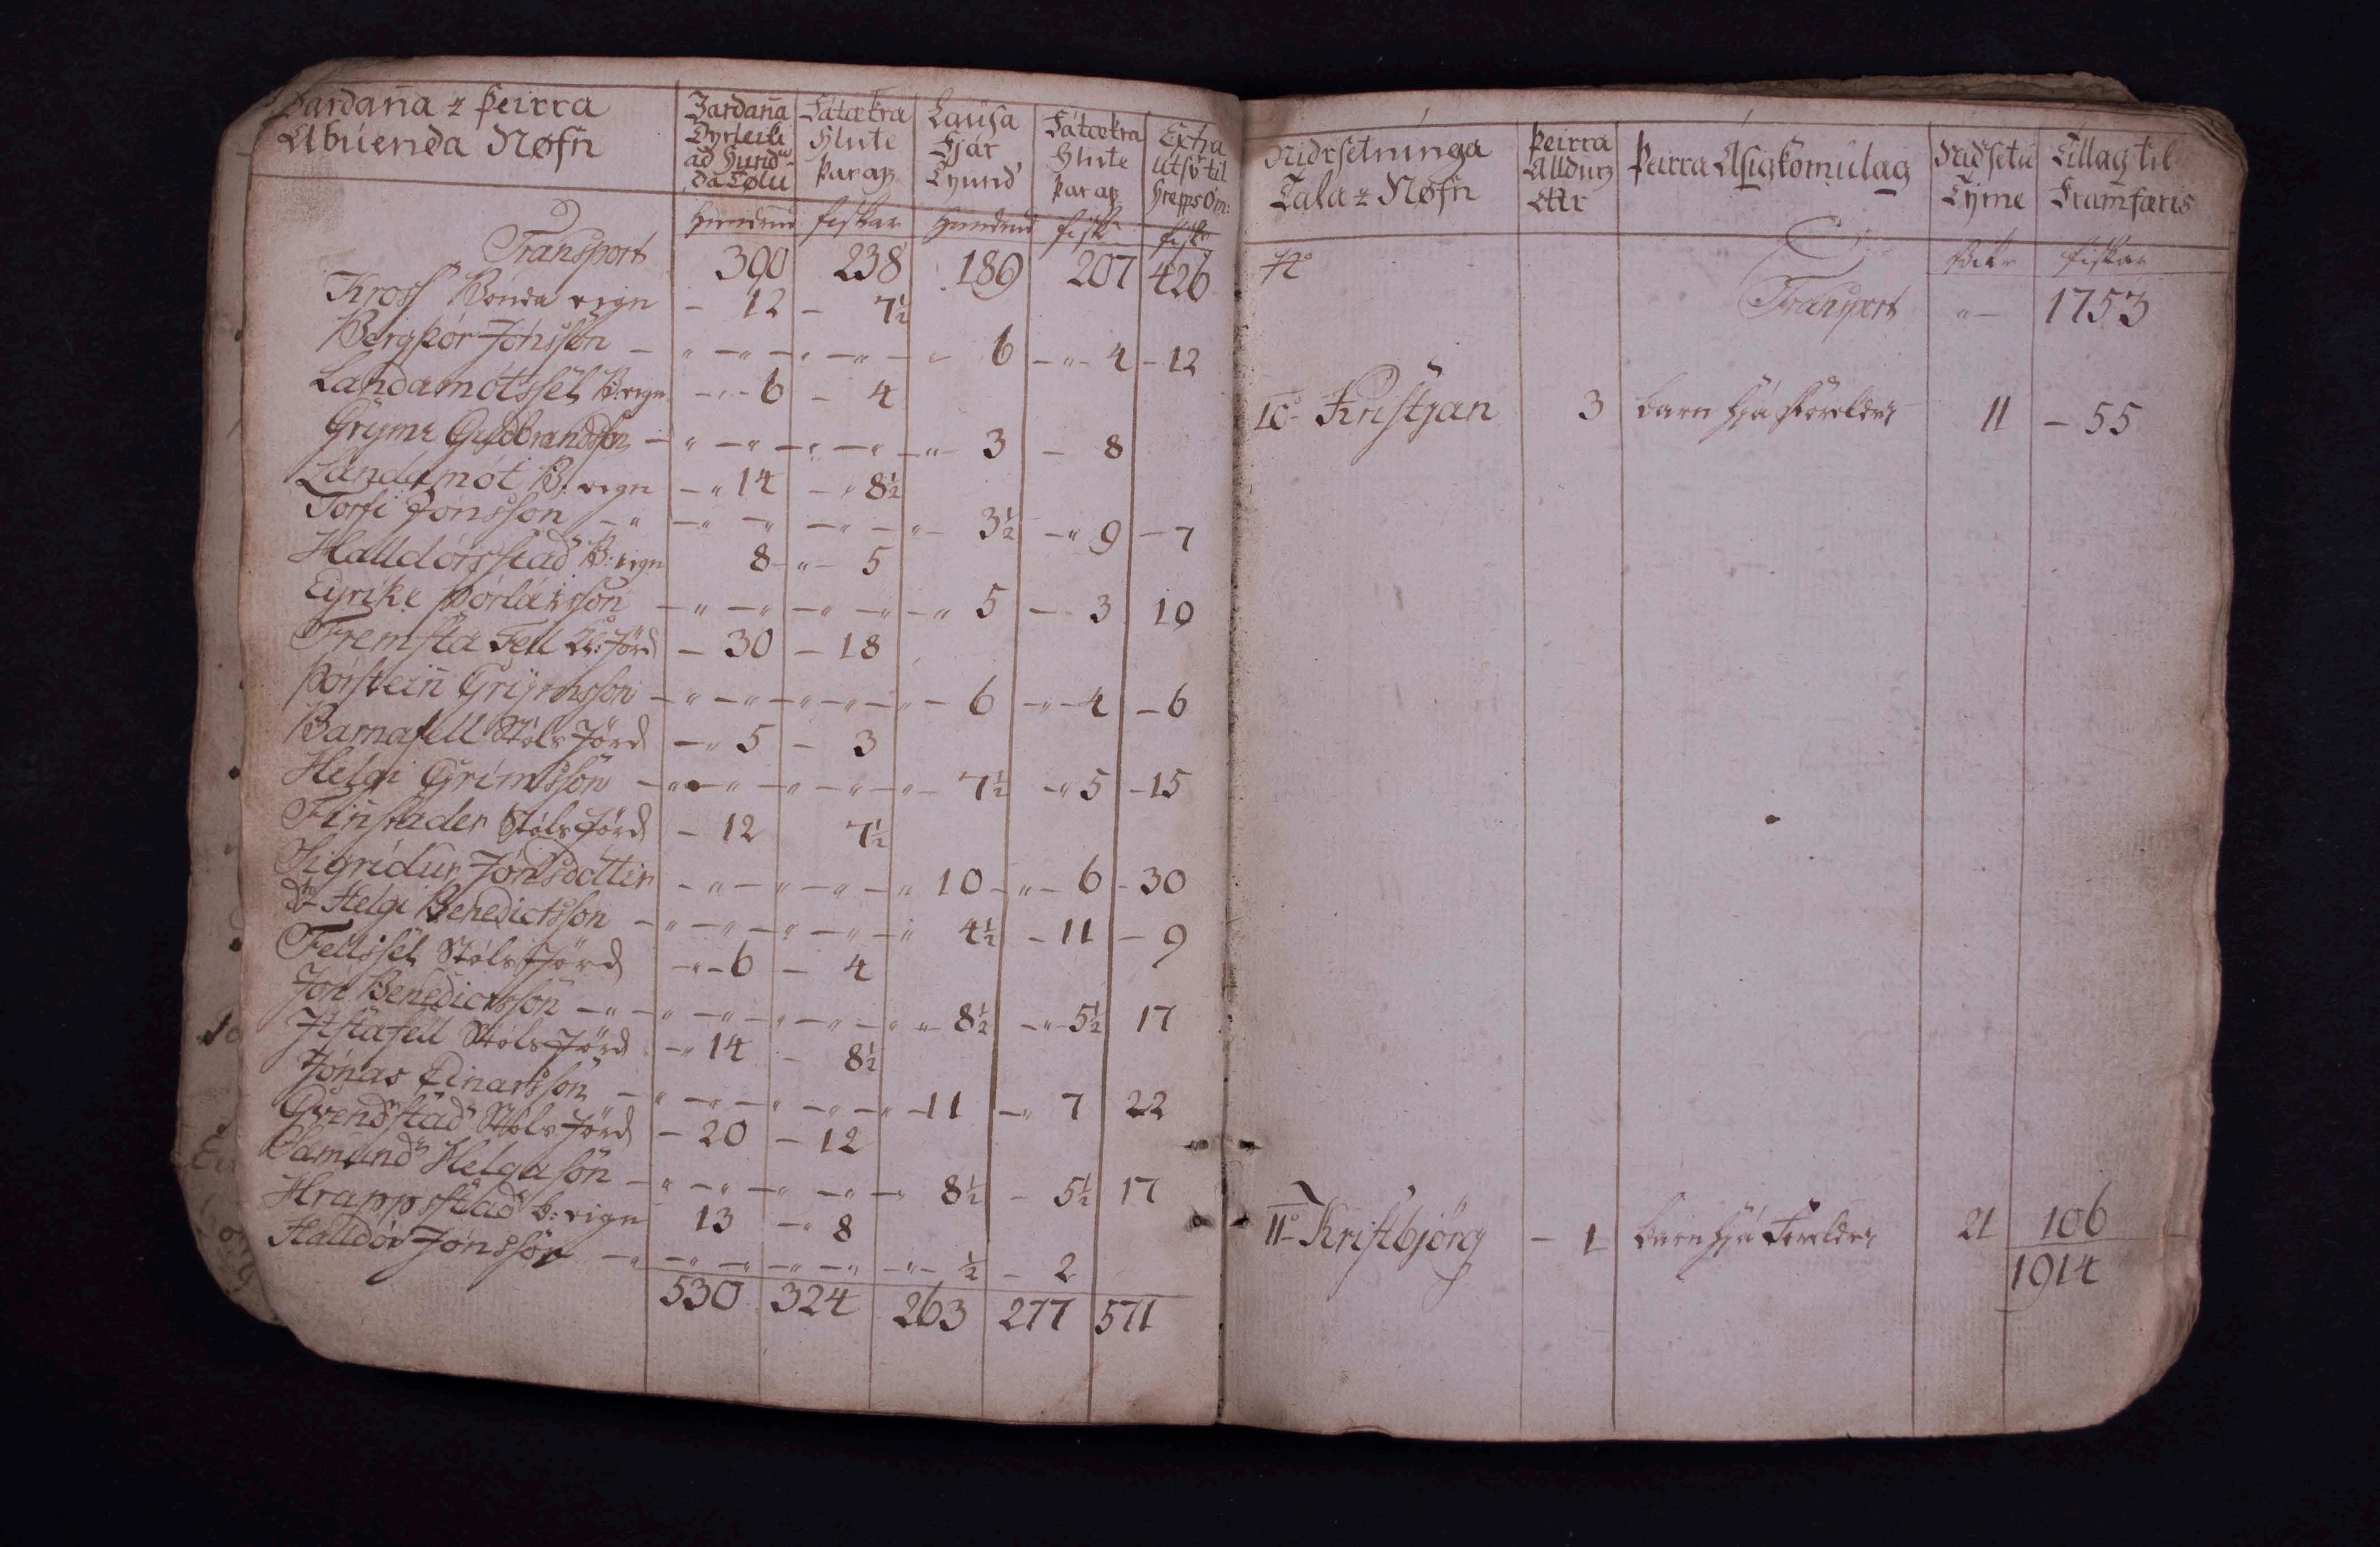 Jardaña & Þeirra
Ábúenda Nøfn
Jardaña Dyrleiki ad Hundr- da Tølu
Fátækra Hlute Þar af
Lausa Fjár Tyund
Fátækra Hlute Þar af
Extra Utsv: til Hrepps Óm:
Hundrud fiskar Hundrud fisk fisk
Transport 390 238 189 207 426
Kross Bónda eign - 12 - 7½
Bergþór Jónsson - 6 - 4 - 12
Landamótssel B: eign - 6 - 4
Gryme Guðbrandsson - 3 - 8
Landamót B: eign - 14 - 8½
Torfi Jónsson - 3½ - 9 - 7
Halldórsstad B: eign 8 - 5
Eyrike Þorláksson - 5 - 3 10
Fremsta Fell Kl: Jörd - 30 - 18
Þorsteiñ Grijmsson - 6 - 4 - 6
Barnafell Stóls Jörd - 5 - 3
Helgi Grímsson - 7½ - 5 - 15
Fiñstader Stóls Jörd - 12 7½
Sigrídur Jónsdotter - 10 - 6 - 30
Helgi Benedictsson - 4½ - 11 - 9
Fellssel Stóls Jörd - 6 - 4
Jón Benedictsson - 8½ - 5½ 17
Ystafell Stóls Jörd - 14 - 8½
Jónas Einarsson - 11 - 7 22
Gvendstad Stóls Jörd - 20 - 12
Samund Helgason - 8½ - 5½ 17
Hrappsstad b: eign 13 - 8
Halldór Jónsson - ½ - 2
530 324 263 277 571
Nidrsetninga
Tala & Nøfn
Þeirra Alldurs Ár
Þeirra Ásigkomulag
Nidsetu Tyme
Tillag til Framfæris
No fiskar
Transport - 1753
10° Kristjan 3 barn hjá Foreldrum 11 - 55
11° Kristbjörg - 1 barn hjá Foreldrum 21 106
1914